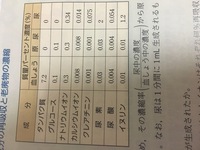 の再吸収と老廃物の濃縮
成分 質量パーセント濃度(%)
血しょう 原尿 尿
タンパク質 7.2 0 0
グルコース 0.1 0.1 0
ナトリウムイオン 0.3 0.3 0.34
カルシウムイオン 0.008 0.008 0.014
クレアチニン 0.001 0.001 0.075
尿素 0.03 0.03 2
尿酸 0.004 0.004 0.054
イヌリン 0.01 0.01 1.2
尿中の濃度
め、その濃縮率( 血しょう中の濃度 )から原
なお、尿は1分間に1mL生成される
が生成されたか。